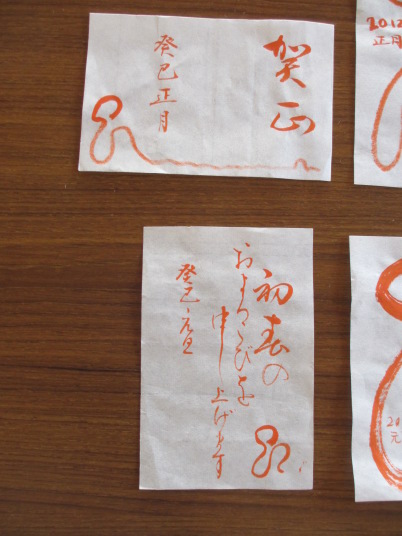 賀正
癸巳正月
初春の
およろこびを
申し上げます
癸巳・元旦
2012
正月
20
元